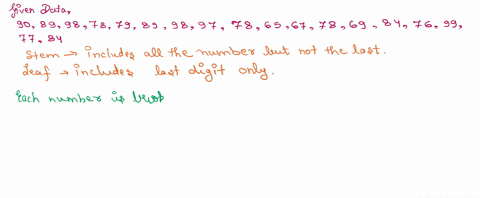 Given Data,
90, 89, 98, 78, 79, 89, 98, 97, 78, 69, 67, 78, 69, 84, 76, 99,
77, 84
Stem → includes all the number but not the last.
Leaf → includes last digit only.
Each number is